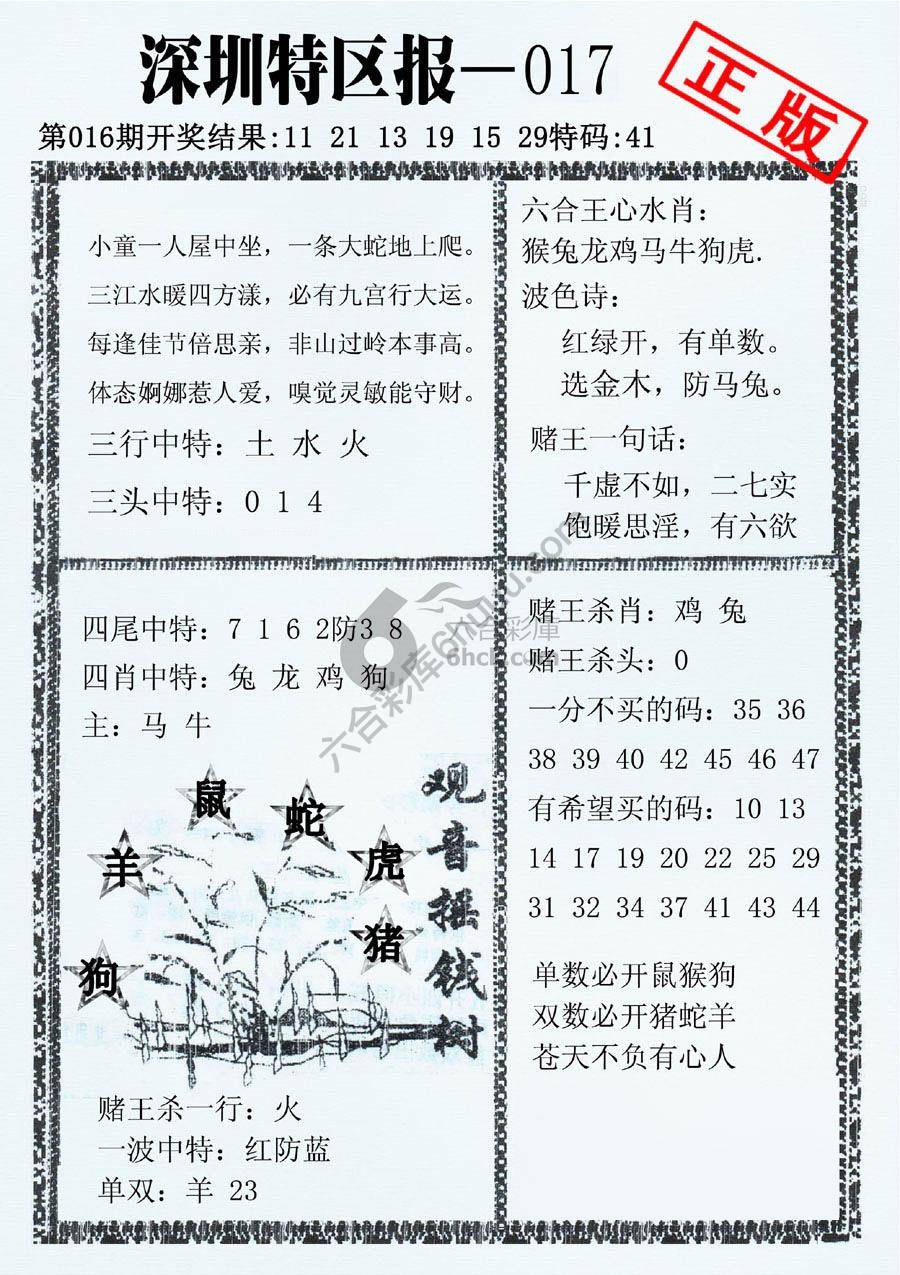 深圳特区报—017
正版
第016期开奖结果:11 21 13 19 15 29特码:41
小童一人屋中坐，一条大蛇地上爬。
三江水暖四方漾，必有九宫行大运。
每逢佳节倍思亲，非山过岭本事高。
体态婀娜惹人爱，嗅觉灵敏能守财。
三行中特：土 水 火
三头中特：0 1 4
六合王心水肖：
猴兔龙鸡马牛狗虎.
波色诗：
红绿开，有单数。
选金木，防马兔。
赌王一句话：
千虚不如，二七实
饱暖思淫，有六欲
四尾中特：7 1 6 2防3 8
四肖中特：兔 龙 鸡 狗
主：马 牛
鼠
蛇
羊
虎
猪
狗
观音摇钱树
赌王杀一行：火
一波中特：红防蓝
单双：羊 23
赌王杀肖：鸡 兔
赌王杀头：0
一分不买的码：35 36
38 39 40 42 45 46 47
有希望买的码：10 13
14 17 19 20 22 25 29
31 32 34 37 41 43 44
单数必开鼠猴狗
双数必开猪蛇羊
苍天不负有心人
六合彩库6huku.com
六合彩庫